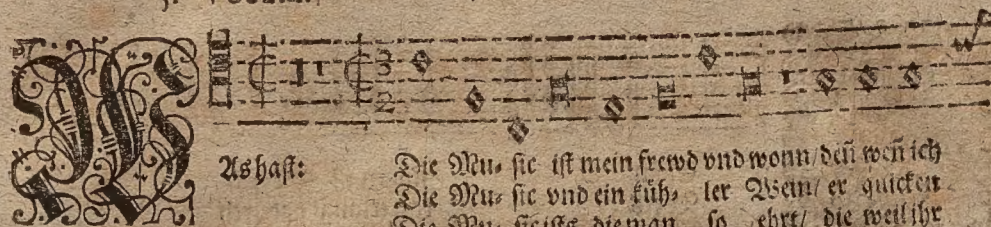 WAs hast: Die Mu⸗ sic ist mein frewd vnd wonn/ deñ weñ ich
Die Mu⸗ sic vnd ein küh⸗ ler Wein/ er quicken
Die Mu⸗ sic ists die man so ehrt/ die weil ihr